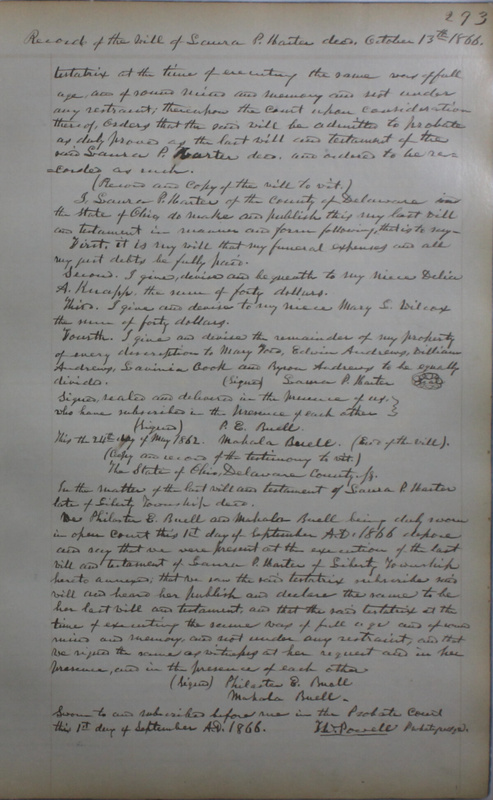 293
Record of the Will of Laura P. Harter decd. October 13th 1866.
testatrix at the time of executing the same was of full
age, and of sound mind and memory and not under
any restraint; thereupon the Court upon consideration
thereof, Orders that the said will be admitted to probate
as duly proved as the last will and testament of the
said Laura P. Harter decd. and ordered to be re-
=corded as such.
(Record and Copy of the will to wit.)
I, Laura P. Harter of the County of Delaware in
the State of Ohio, do make and publish this my last will
and testament in manner and form following, that is to say-
First, it is my will that my funeral expenses and all
my just debts be fully paid.
Second. I give, devise and bequeath to my niece Delia
A. Knapp. the sum of forty dollars.
Third. I give and devise to my niece Mary L. Wilcox
the sum of forty dollars.
Fourth. I give and devise the remainder of my property
of every description to Mary Ford, Edwin Andrews, William
Andrews, Lavinia Cook and Byron Andrews to be equally
divided. (Signed) Laura P. Harter Seal
Signed, sealed and delivered in the presence of us }
who have subscribed in the presence of each other }
(Signed) P. E. Buell
This the 24th day of May 1862. Mahala Buell. (End of the will).
(Copy and record of the testimony to wit.)
The State of Ohio, Delaware County. ss.
In the matter of the last will and testament of Laura P. Harter
late of Liberty Township decd.
We Philester E. Buell and Mahala Buell being duly sworn
in open Court this 1st day of September A.D. 1866 depose
and say that we were present at the execution of the last
will and testament of Laura P. Harter of Liberty Township
hereto annexed; that we saw the said testatrix subscribe said
will and heard her publish and declare the same to be
her last will and testament, and that the said testatrix at the
time of executing the same was of full age and of sound
mind and memory and not under any restraint, and that
we signed the same as witnesses at her request and in her
presence, and in the presence of each other
(Signed) Philester E. Buell
Mahala Buell.
Sworn to and subscribed before me in the Probate Court
this 1st day of September A.D. 1866. Powell Probate Judge.